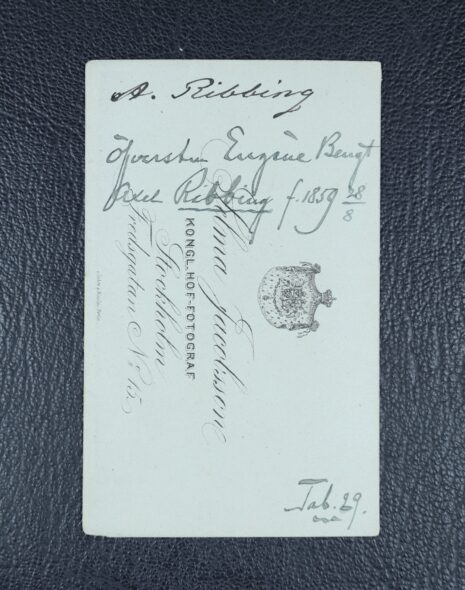 A. Ribbing
Öfversten Eugène Bengt
Axel Ribbing f. 1859 28/8
Selma Jacobsson
KONGL. HOF-FOTOGRAF
Stockholm
Fredsgatan No 15.
Tab. 29.